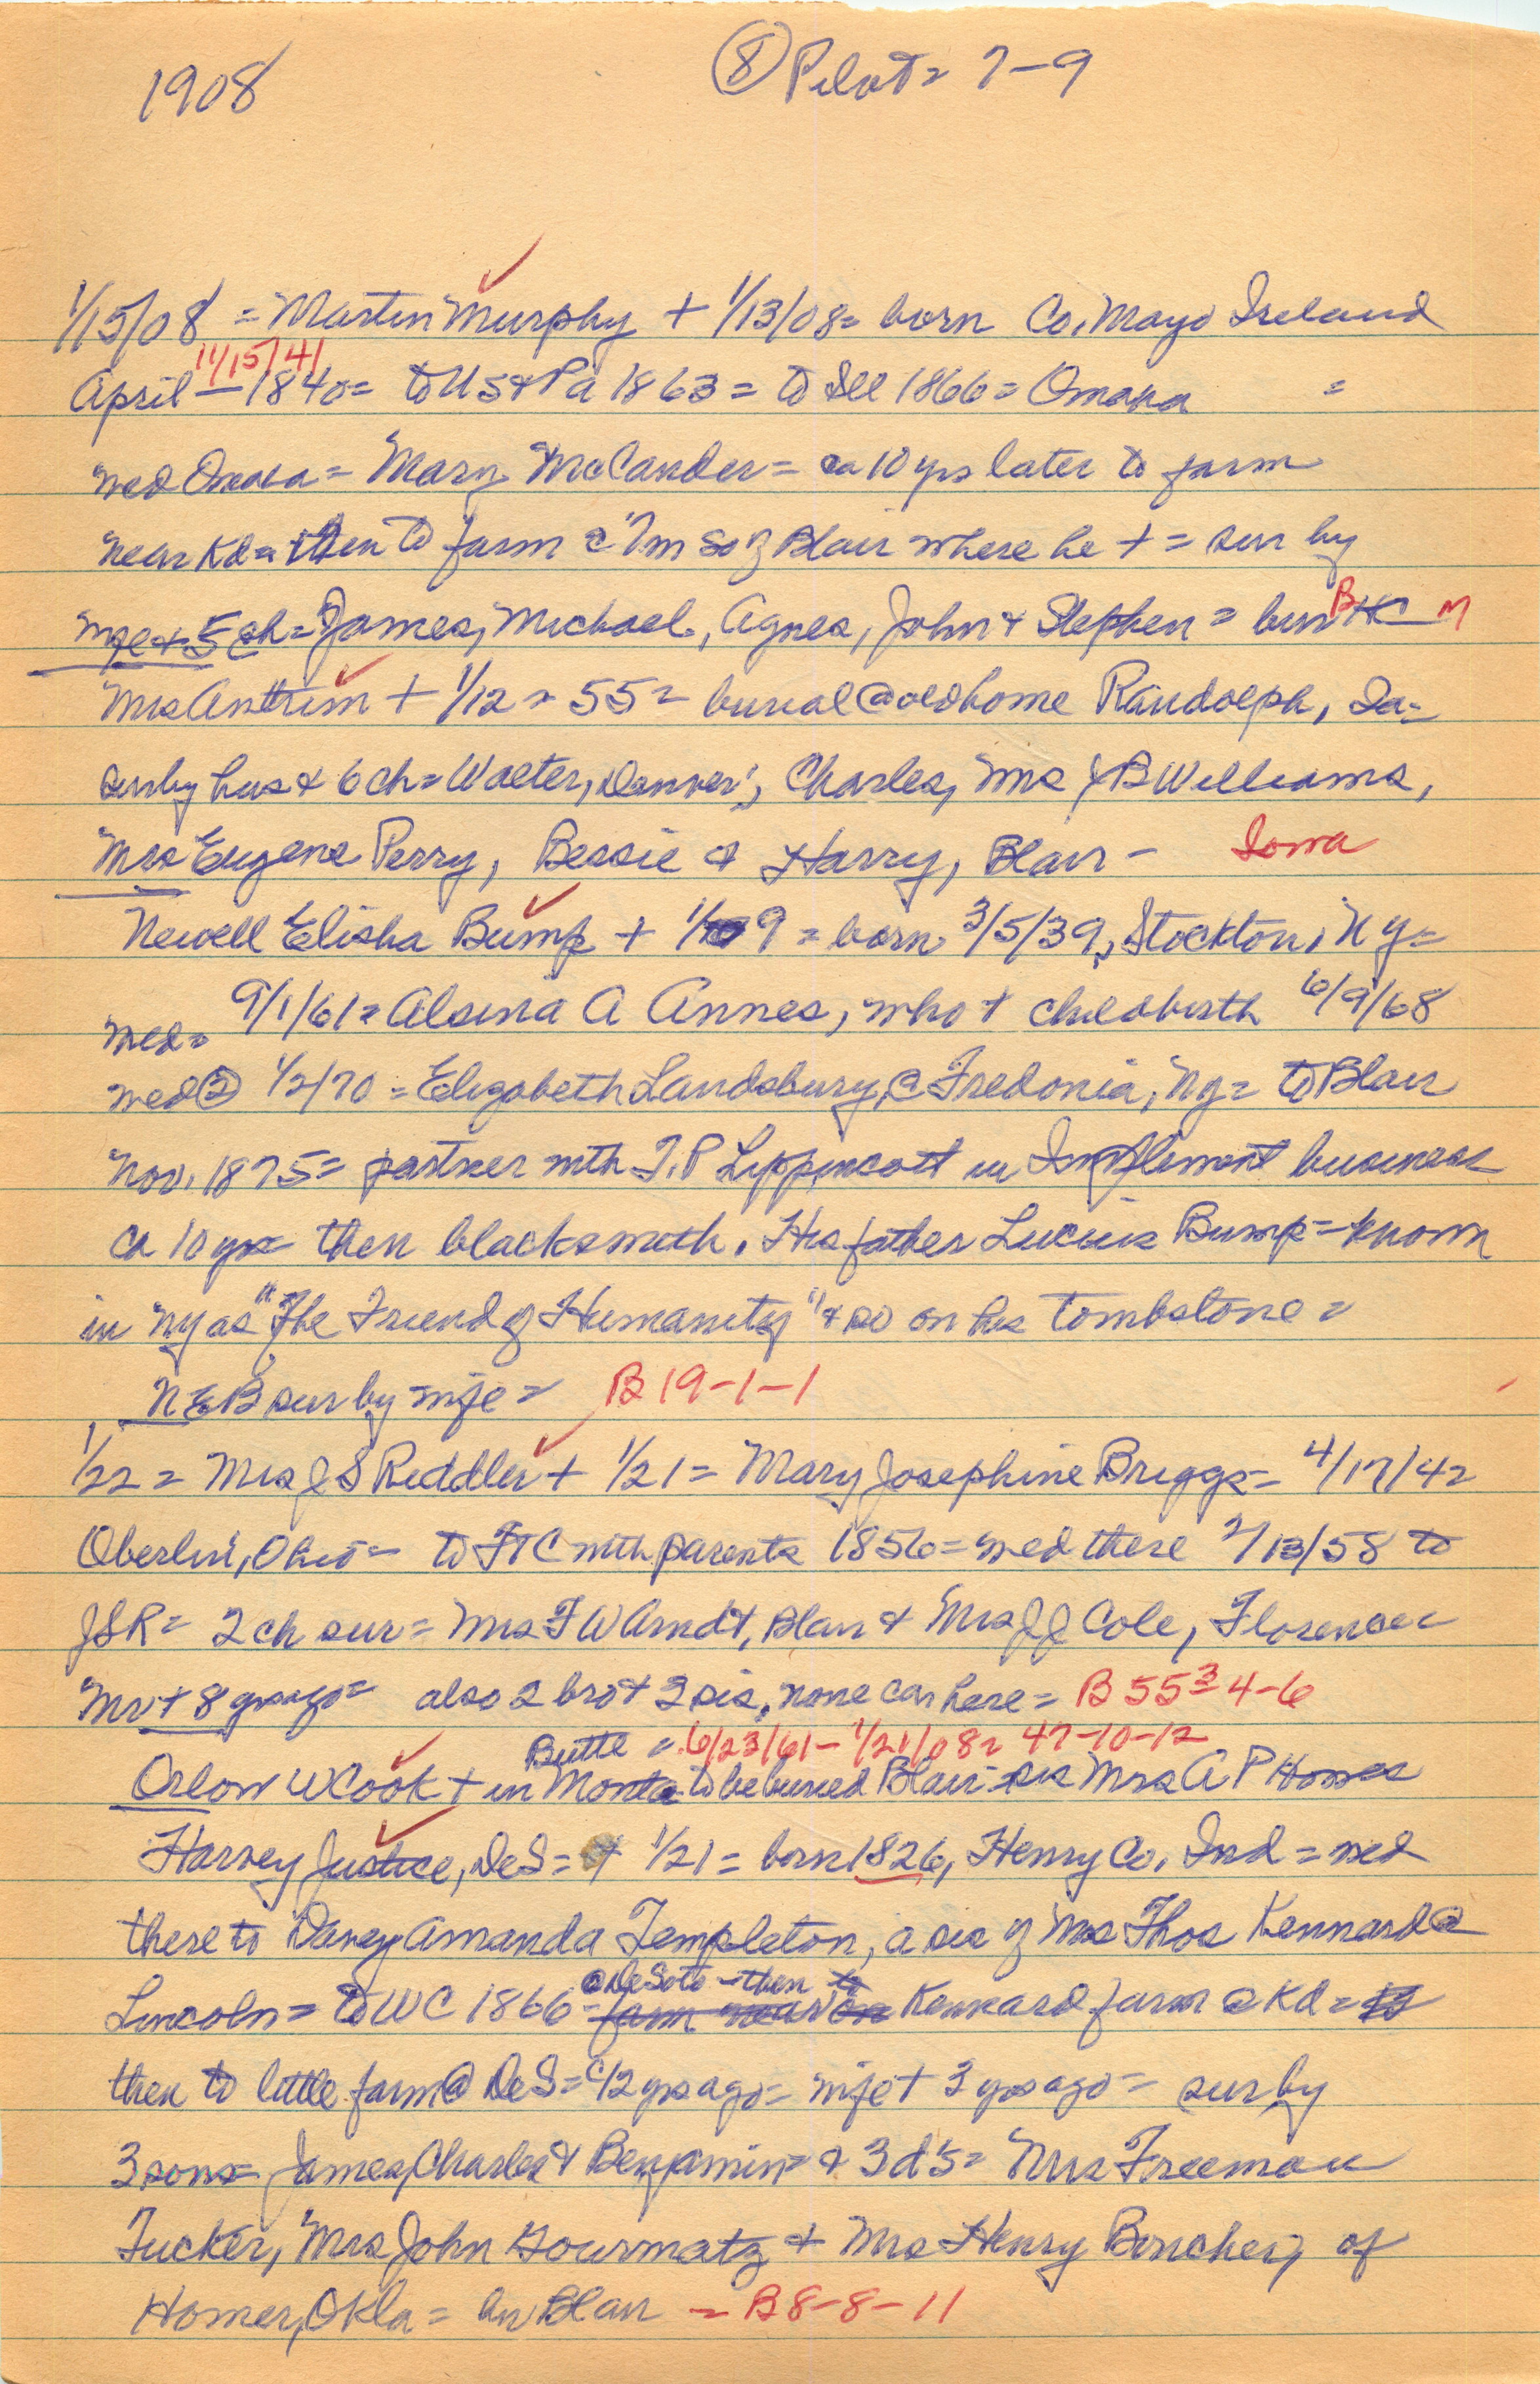 1908 ⑧ Pilot = 7-9
1/15/08 = Martin Murphy + 1/13/08 = born Co. Mayo Ireland
11/15/41
April - 1840 = to US & Pa 1863 = to Ill 1866 = Omaha =
med Omaha = Mary McCander = ca 10 yrs later to farm
near Kd = then to farm c 7m so of Blair where he + = sur by
wife + 5 ch = James, Michael, Agnes, John & Stephen = bur B HC M
Mrs Anthrim + 1/12 = 55 = burial @ old home Randolph, Ia -
sur by hus & 6 ch = Walter, Denver; Charles, Mrs J B Williams,
Mrs Eugene Perry, Bessie & Harry, Blair - Iowa
Newell Elisha Bump + 1/9 = born 3/5/39, Stockton, N y =
med = 9/1/61 = Alsina A Annes, who + childbirth 6/9/68
med ② 1/2/70 = Elizabeth Landsbury, @ Fredonia, Ny = to Blair
Nov. 1875 = partner with T. P Lippincott in Implement business
ca 10 yrs then blacksmith. His father Lucius Bump = known
in Ny as "The Friend of Humanity" & so on his tombstone =
N E B sur by wife = B 19-1-1
1/22 = Mrs J S Riddler + 1/21 = Mary Josephine Briggs = 4/17/42
Oberlin, Ohio = to FTC with parents 1856 = med there 7/13/58 to
JSR = 2 ch sur = Mrs F W Arndt, Blair & Mrs J J Cole, Florence =
Mr + 8 yrs ago = also 2 bro & 2 sis, none can here = B 55 = 3 4-6
Butte = 6/23/61 - 1/21/08 = 47-10-12
Orlow W Cook + in Monta to be buried Blair = sis Mrs A P Howes
Harvey Justice, DeS = + 1/21 = born 1826, Henry Co. Ind = med
there to Darcy Amanda Templeton, a sis of Mrs Thos Kennard @
@ DeSoto - then to
Lincoln = to WC 1866 = farm near on Kennard farm @ Kd = to
then to little farm @ DeS = c 12 yrs ago = wife + 3 yrs ago = sur by
3 sons = James, Charles & Benjamin = & 3 d's = Mrs Freeman
Tucker, Mrs John Gourmatz & Mrs Henry Boucher, of
Homer, Okla = bur Blair = B 8-8-11